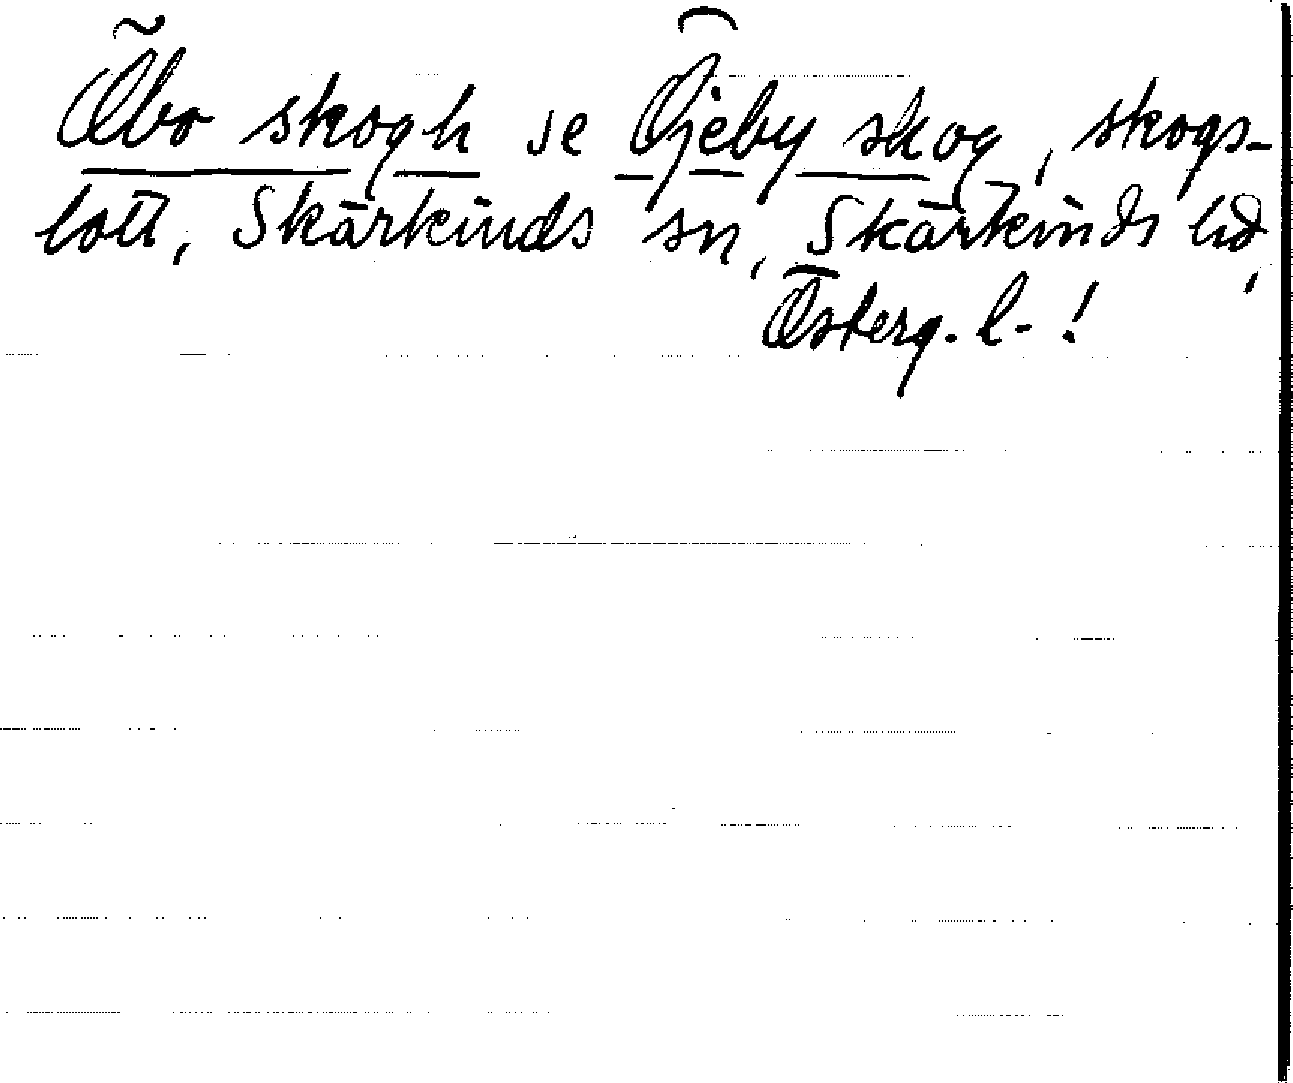 Öbo skogh se Öjeby skog, skogs-
lott, Skärkinds sn, Skärkinds hd,
Österg. l. !